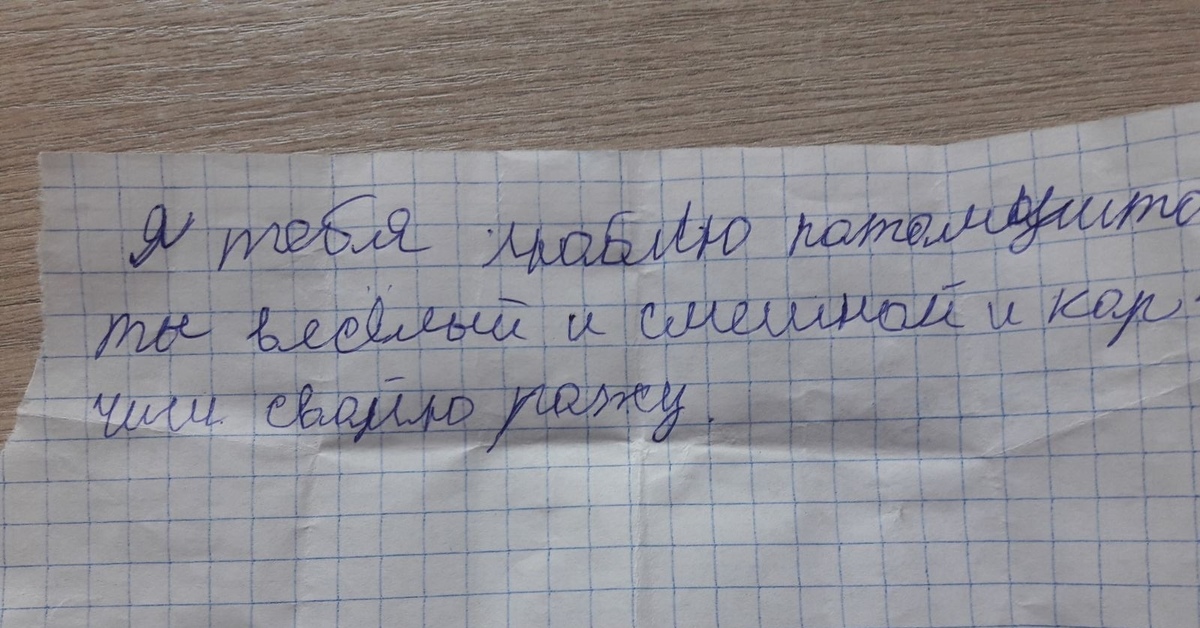 Я тебя люблю патамушто
ты весёлый и смешной и кор
чиш свайю рожу.